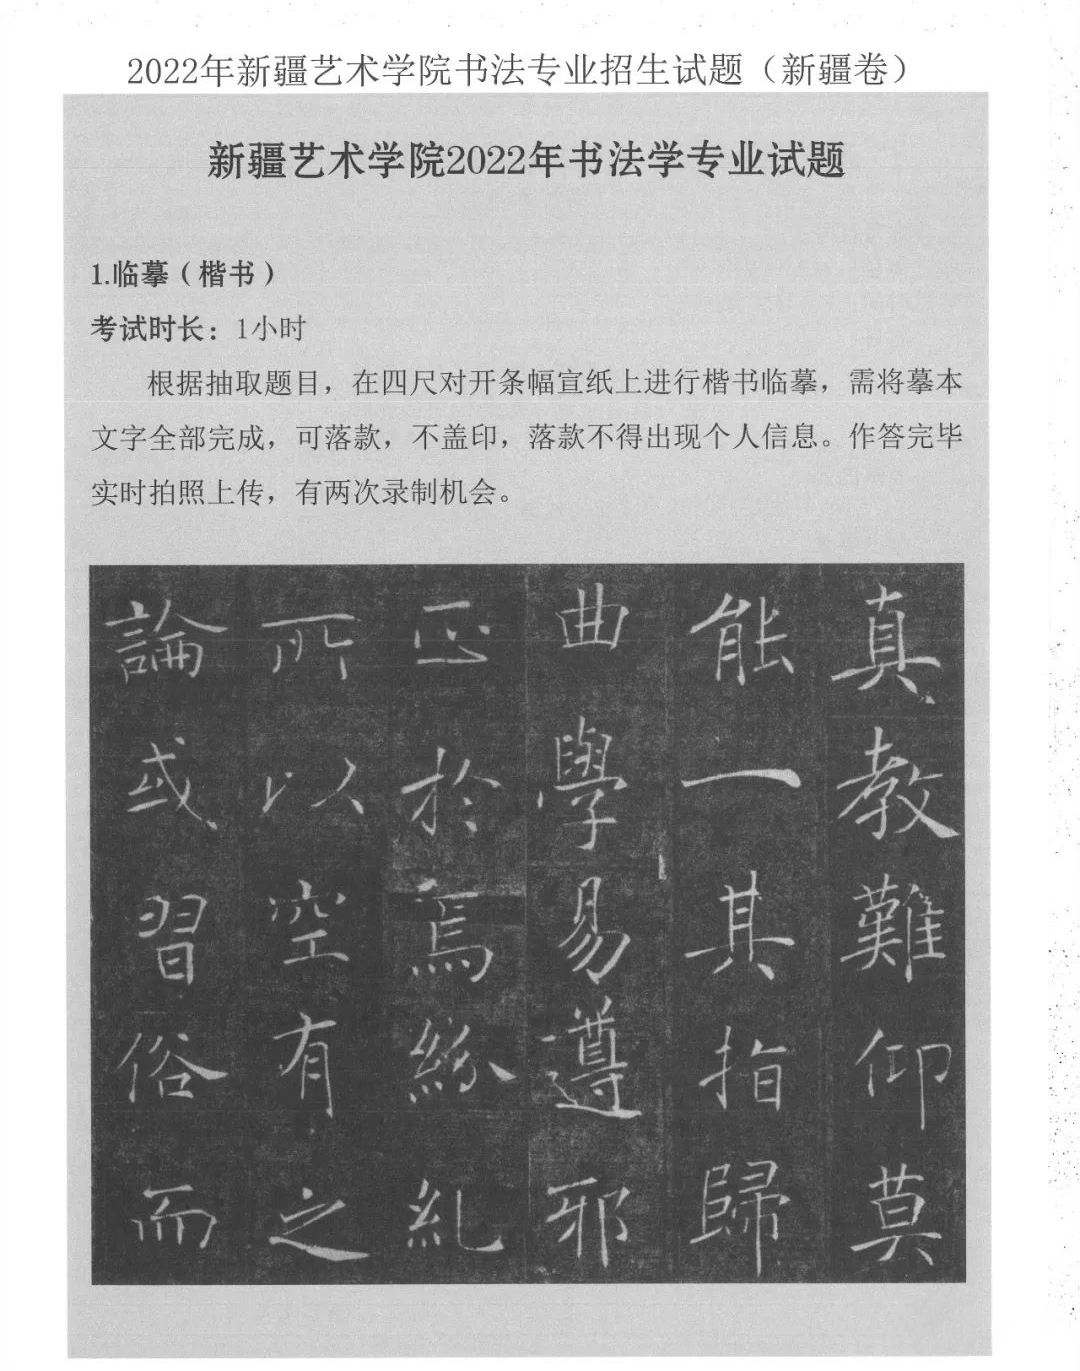 2022年新疆艺术学院书法专业招生试题（新疆卷）
新疆艺术学院2022年书法学专业试题
1.临摹（楷书）
考试时长：1小时
根据抽取题目，在四尺对开条幅宣纸上进行楷书临摹，需将摹本
文字全部完成，可落款，不盖印，落款不得出现个人信息。作答完毕
实时拍照上传，有两次录制机会。
真教難仰莫
能一其指歸
曲學易遵邪
正於焉紛糺
所以空有之
論或習俗而